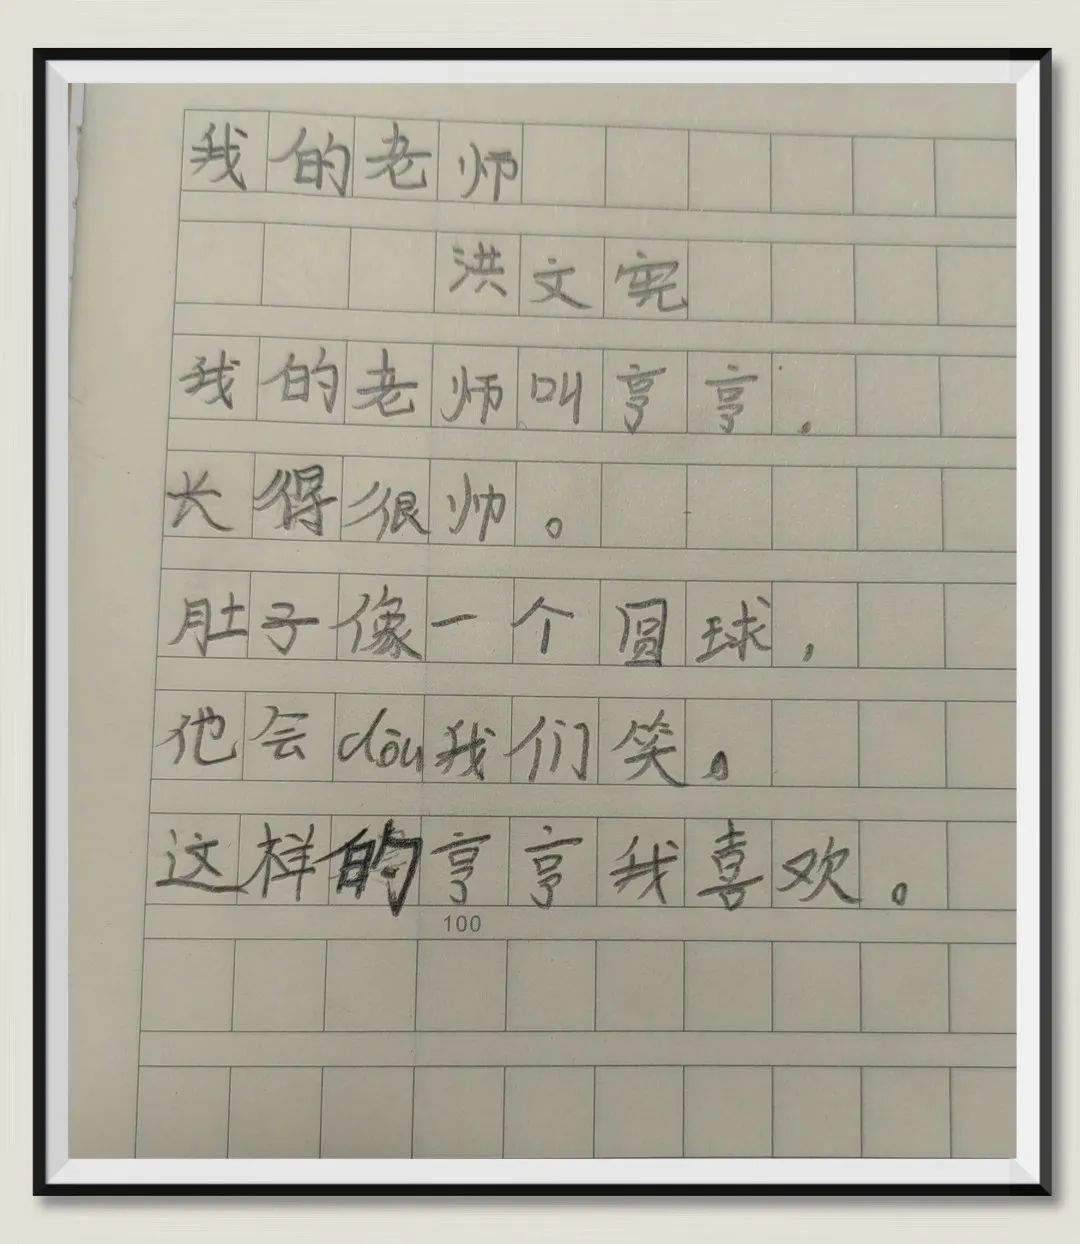 我的老师
洪文宪
我的老师叫亨亨，
长得很帅。
肚子像一个圆球，
他会dòu我们笑。
这样的亨亨我喜欢。
100